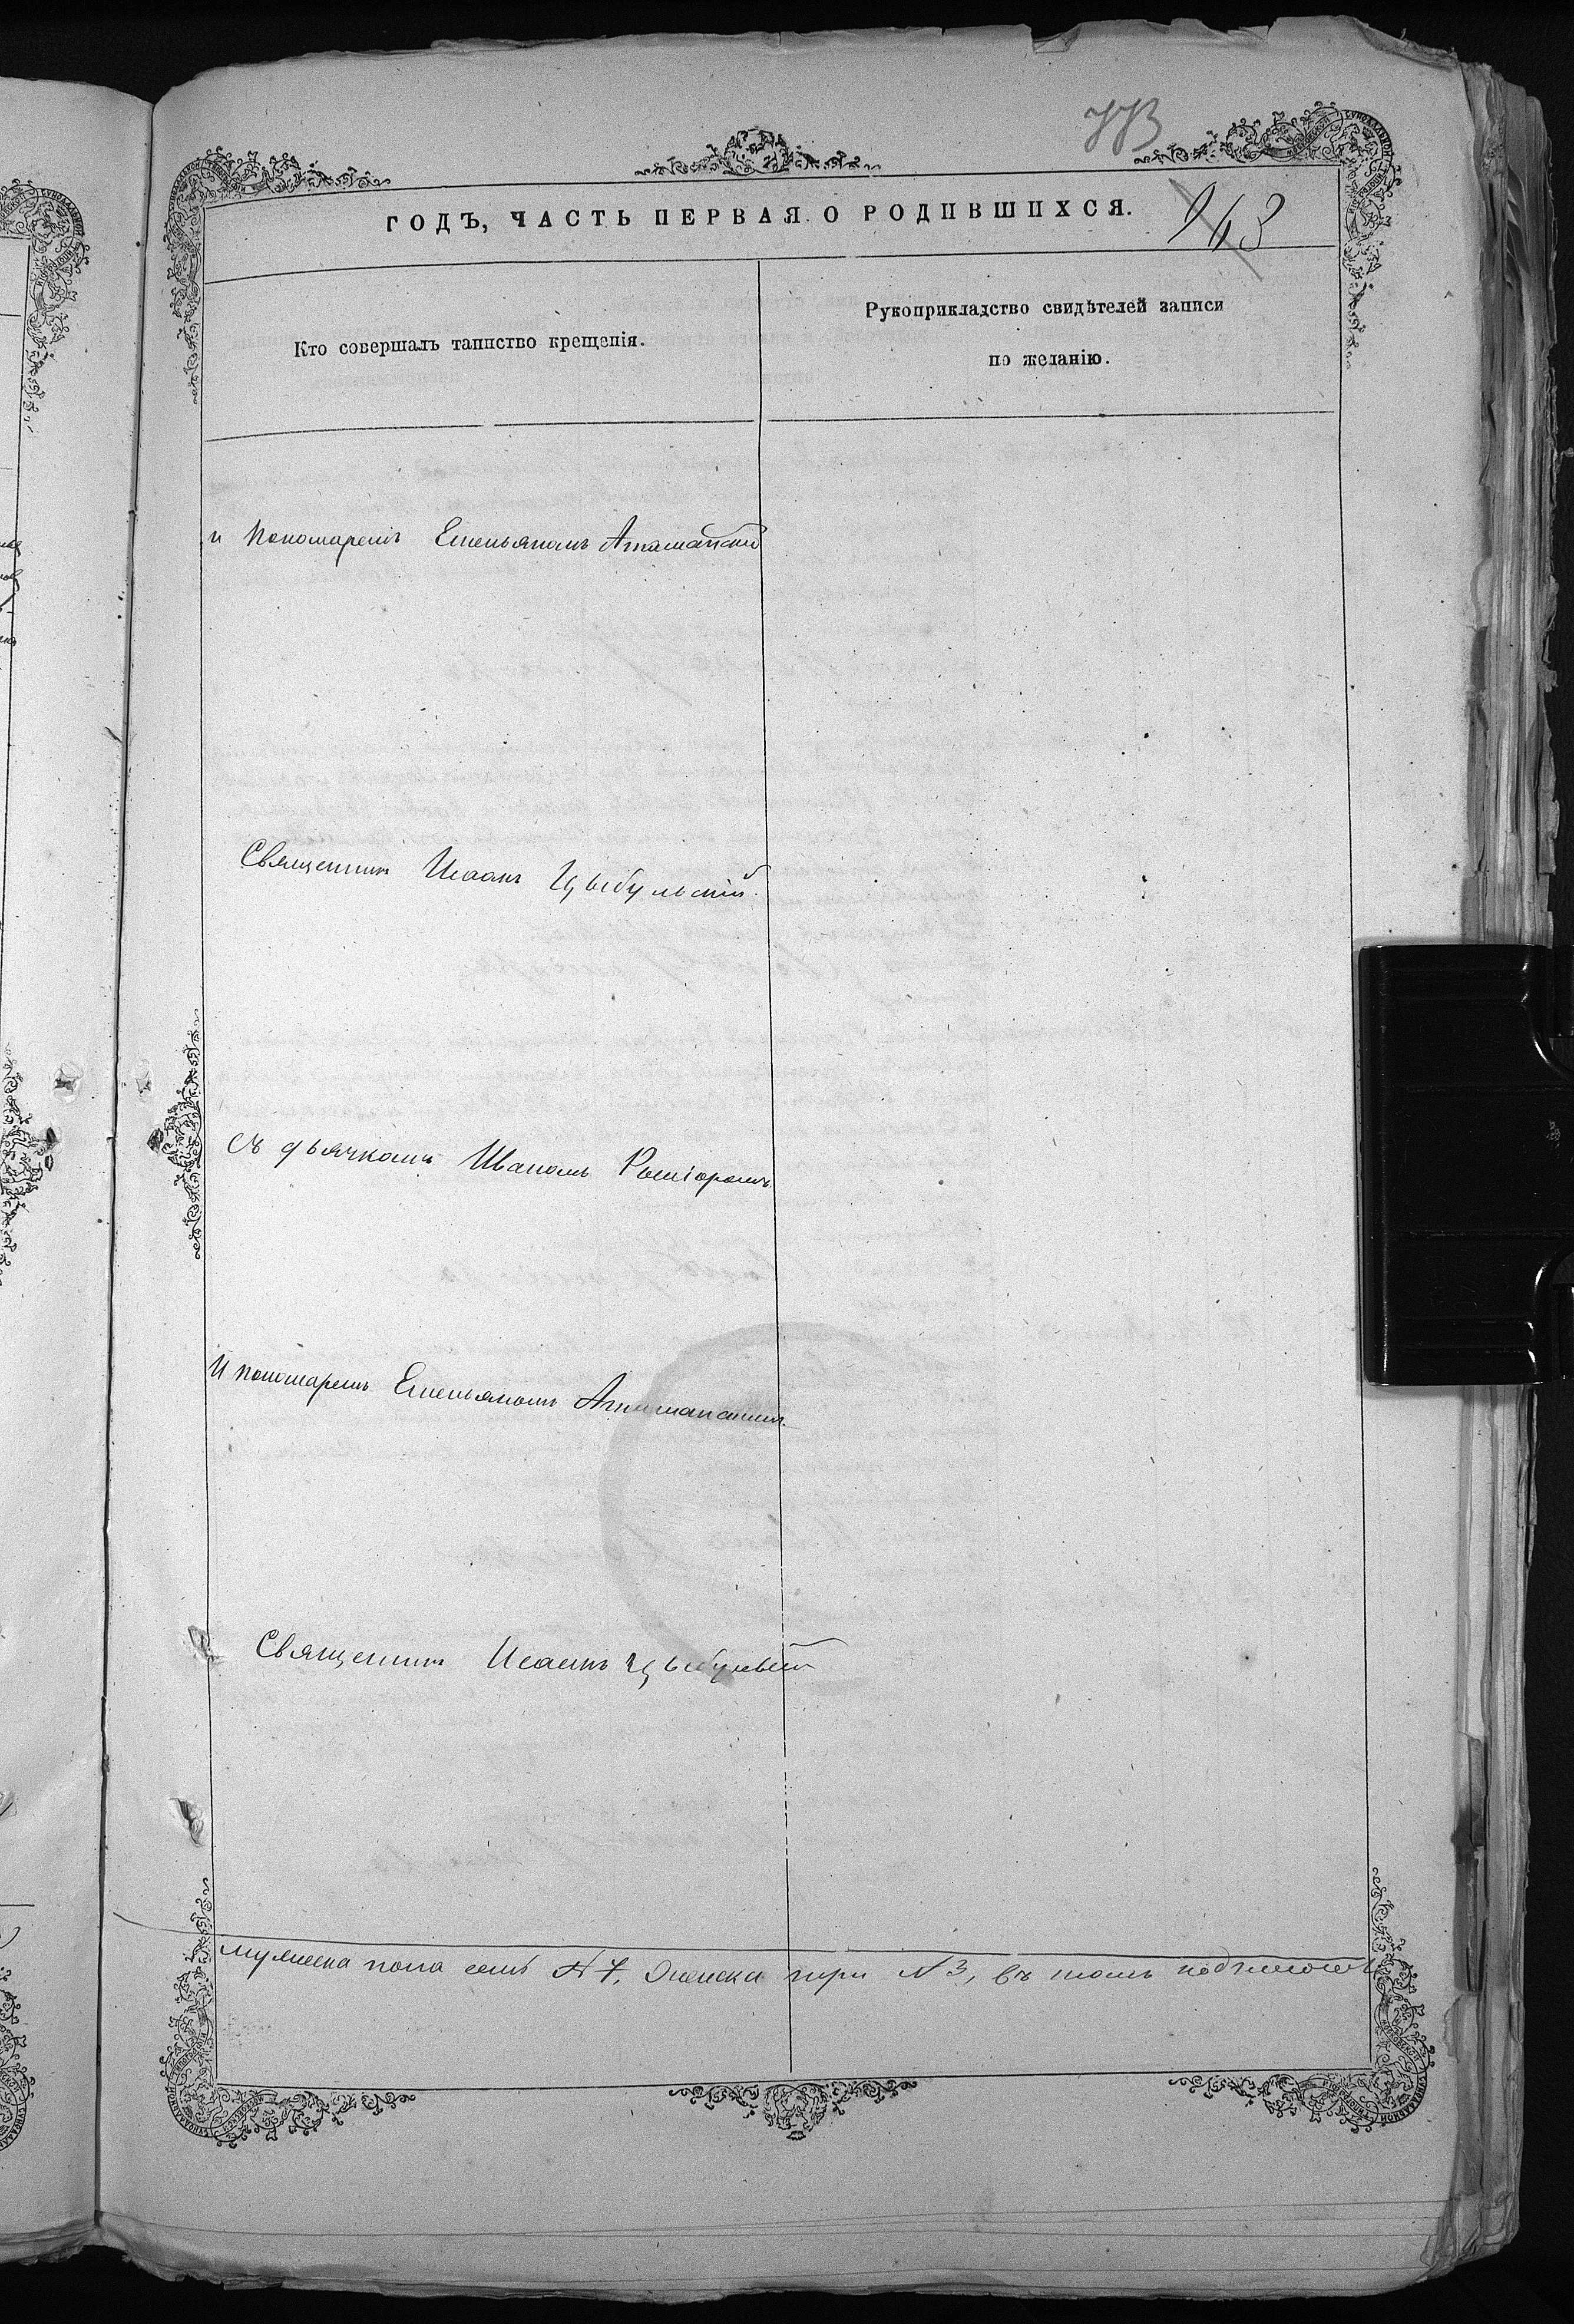 773
ГОДЪ, ЧАСТЬ ПЕРВАЯ О РОДИВШИХСЯ.
963
Кто совершалъ таинство крещенія.
Рукоприкладство свидѣтелей записи
по желанію.
и Пономаремъ Емельяномъ Атаманский
Священникъ Иоаннъ Цыбульскій.
Съ дьячкомъ Иваномъ
И пономаремъ Емельяномъ Атаманскимъ.
Священникъ Иоаннъ Цыбульскій
мужеска пола семь № 7, женска при № 3, въ томъ